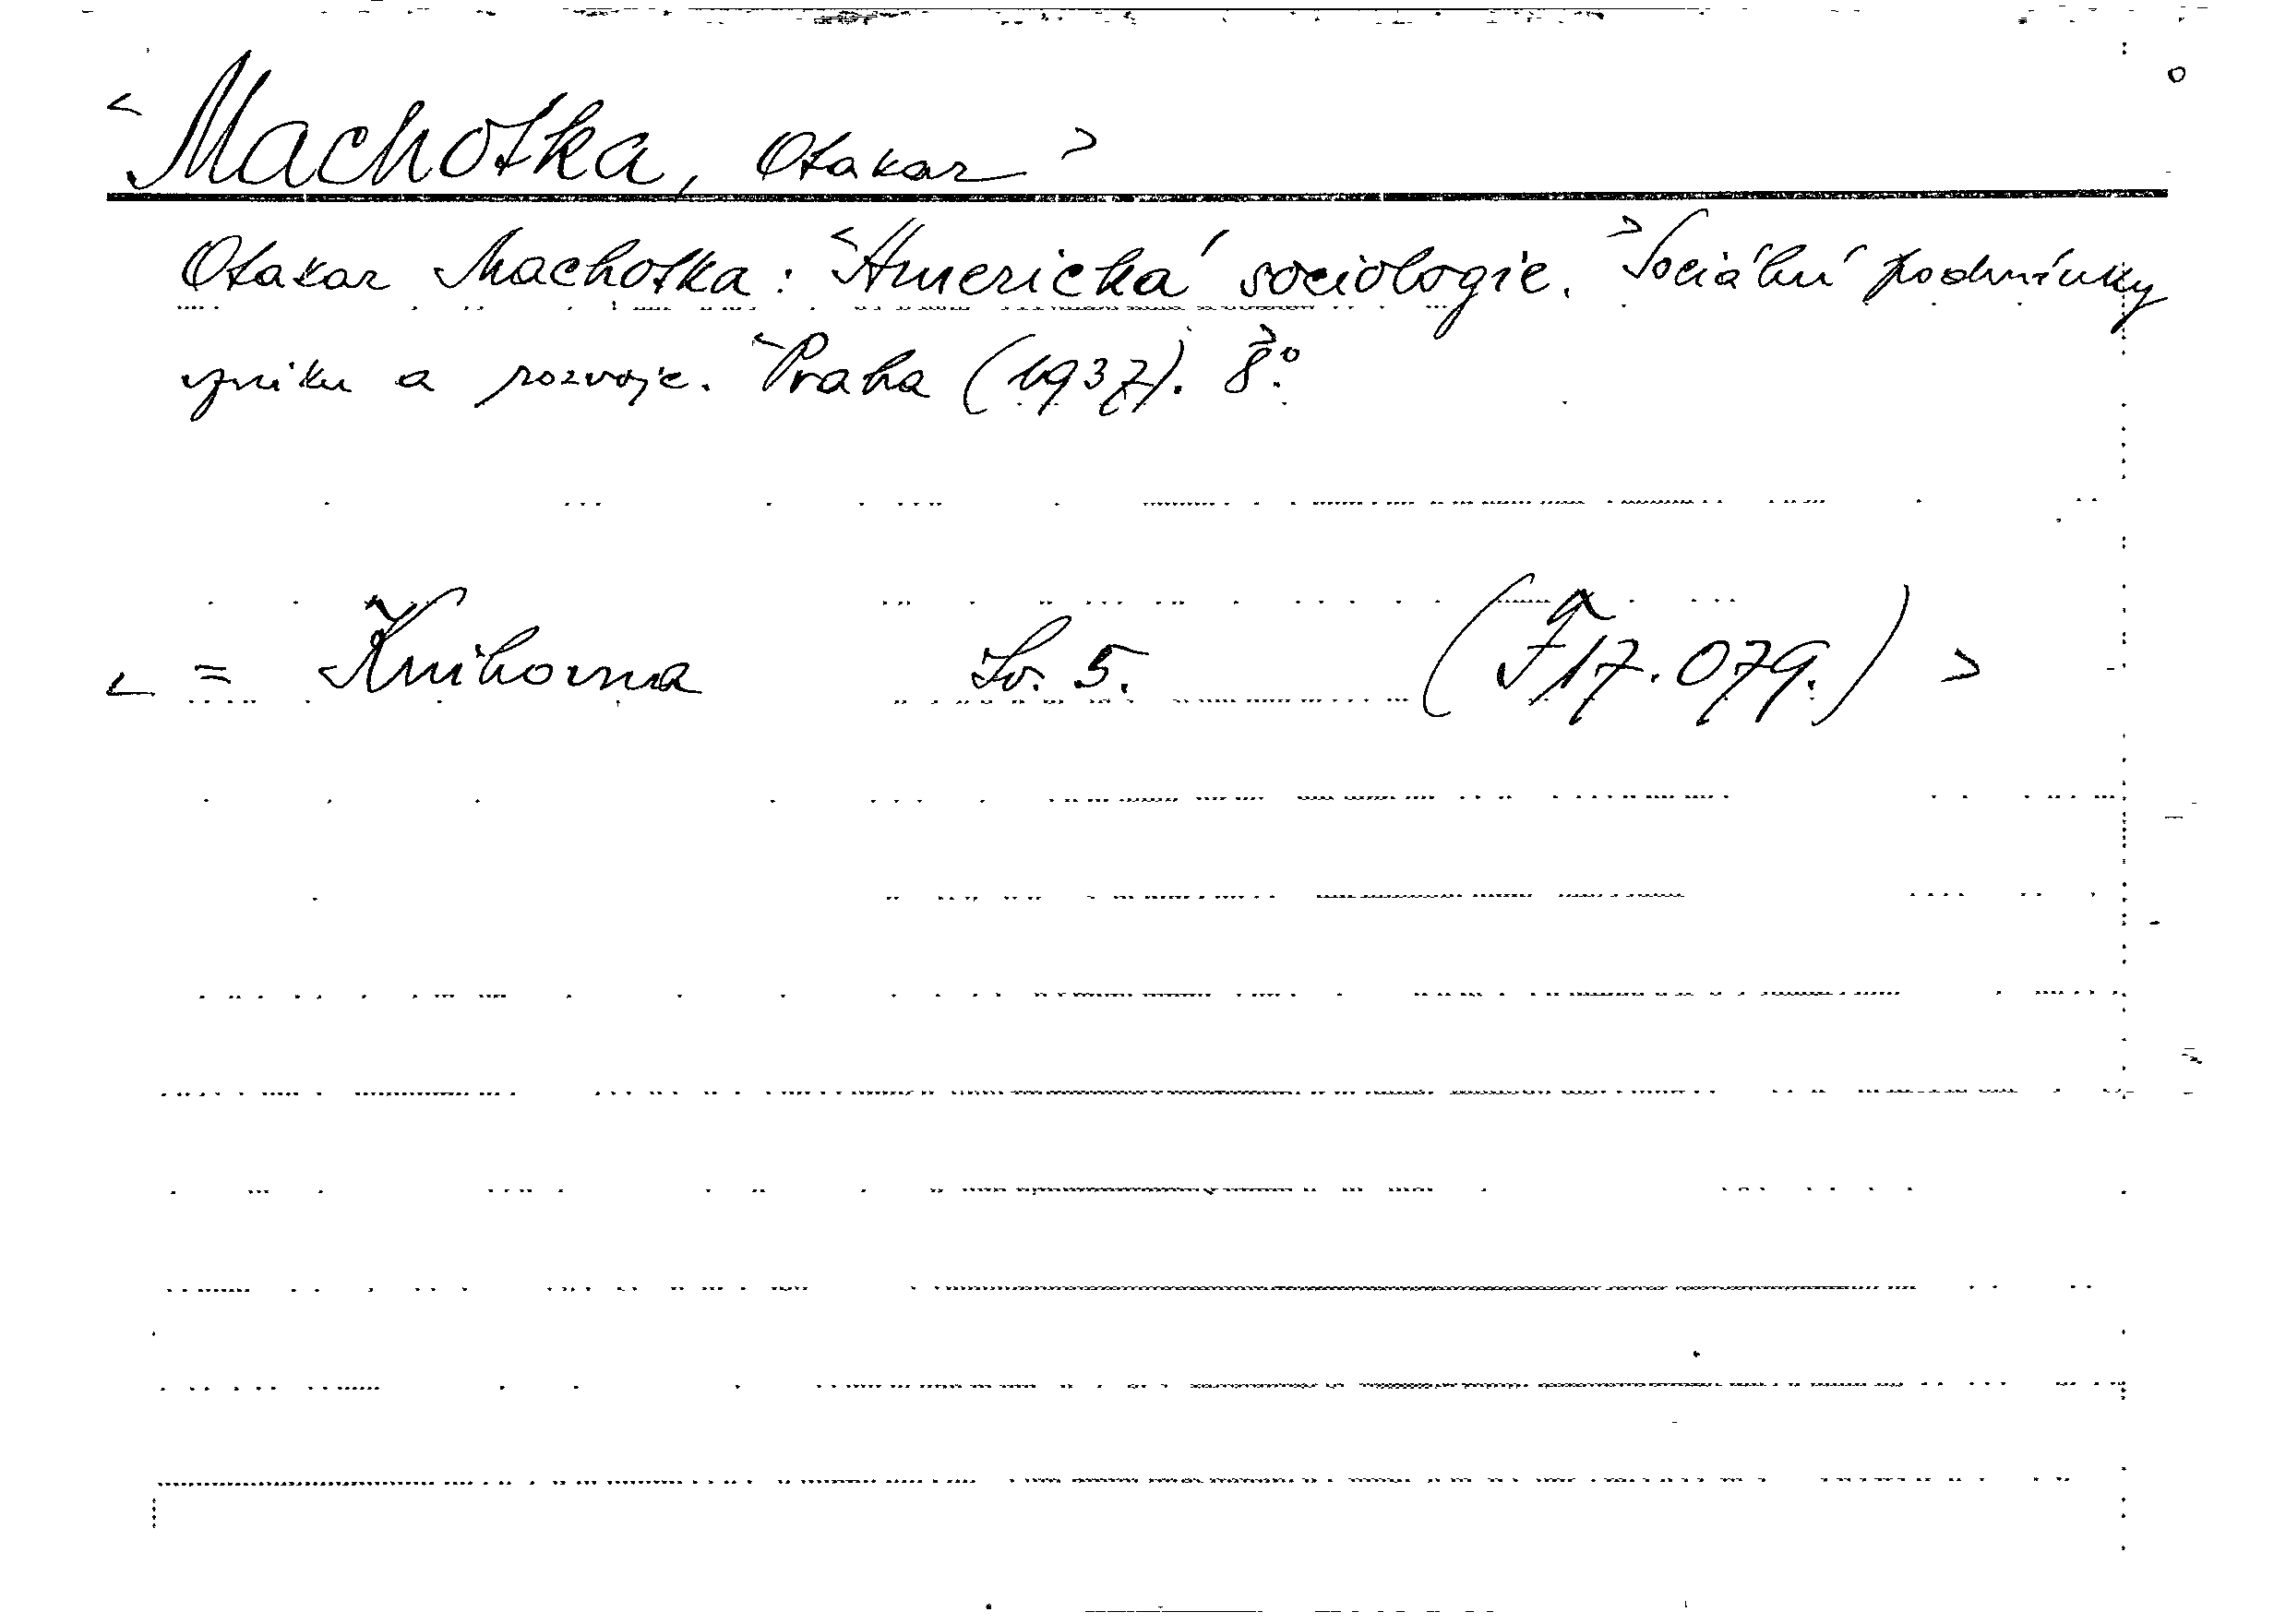 <Machotka, Otakar>
Otakar Machotka: <Americká sociologie.> Sociální podmínky
vzniku a rozvoje. <Praha (1937). 8°.>
<= Knihovna Sv. 5. (F 17.079.)>